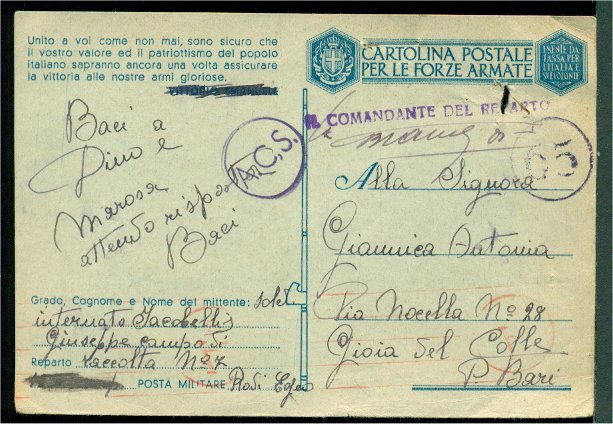 Unito a voi come non mai, sono sicuro che
il vostro valore ed il patriottismo del popolo
italiano sapranno ancora una volta assicurare
la vittoria alle nostre armi gloriose.
Baci a
Dino e
Marosa
attendo
Baci
A.C.S.
Grado, Cognome e Nome del mittente: sold
internato Iacobellis
Giuseppe campo di
Reparto raccolta Nº 7
POSTA MILITARE Rodi Egeo
CARTOLINA POSTALE
PER LE FORZE ARMATE
ESENTE DA
TASSA PER
L'ITALIA
E COLONIE
IL COMANDANTE DEL REPARTO
55
Alla Signora
Giannica Antonia
Via Nocella Nº 28
Gioia del Colle
P. Bari